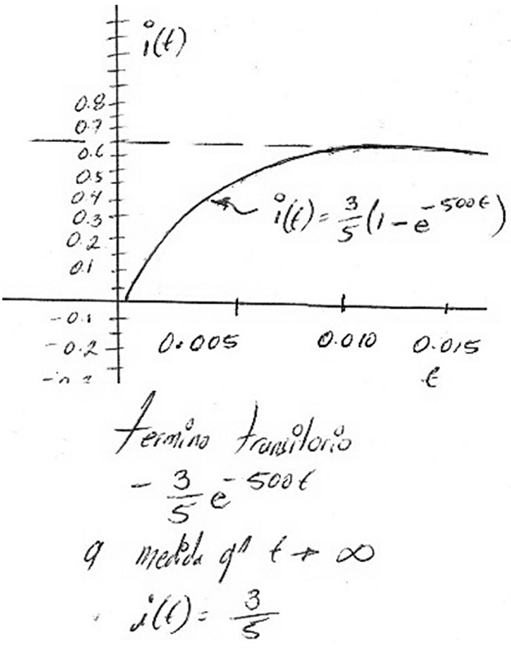 i(t)
0.8
0.7
0.6
0.5
0.4
i(t) = 3/5 (1 - e^-500t)
0.3
0.2
0.1
-0.1
-0.2 0.005 0.010 0.015
-0.3 t
termino transitorio
- 3/5 e^-500t
a medida q' t → ∞
i(t) = 3/5